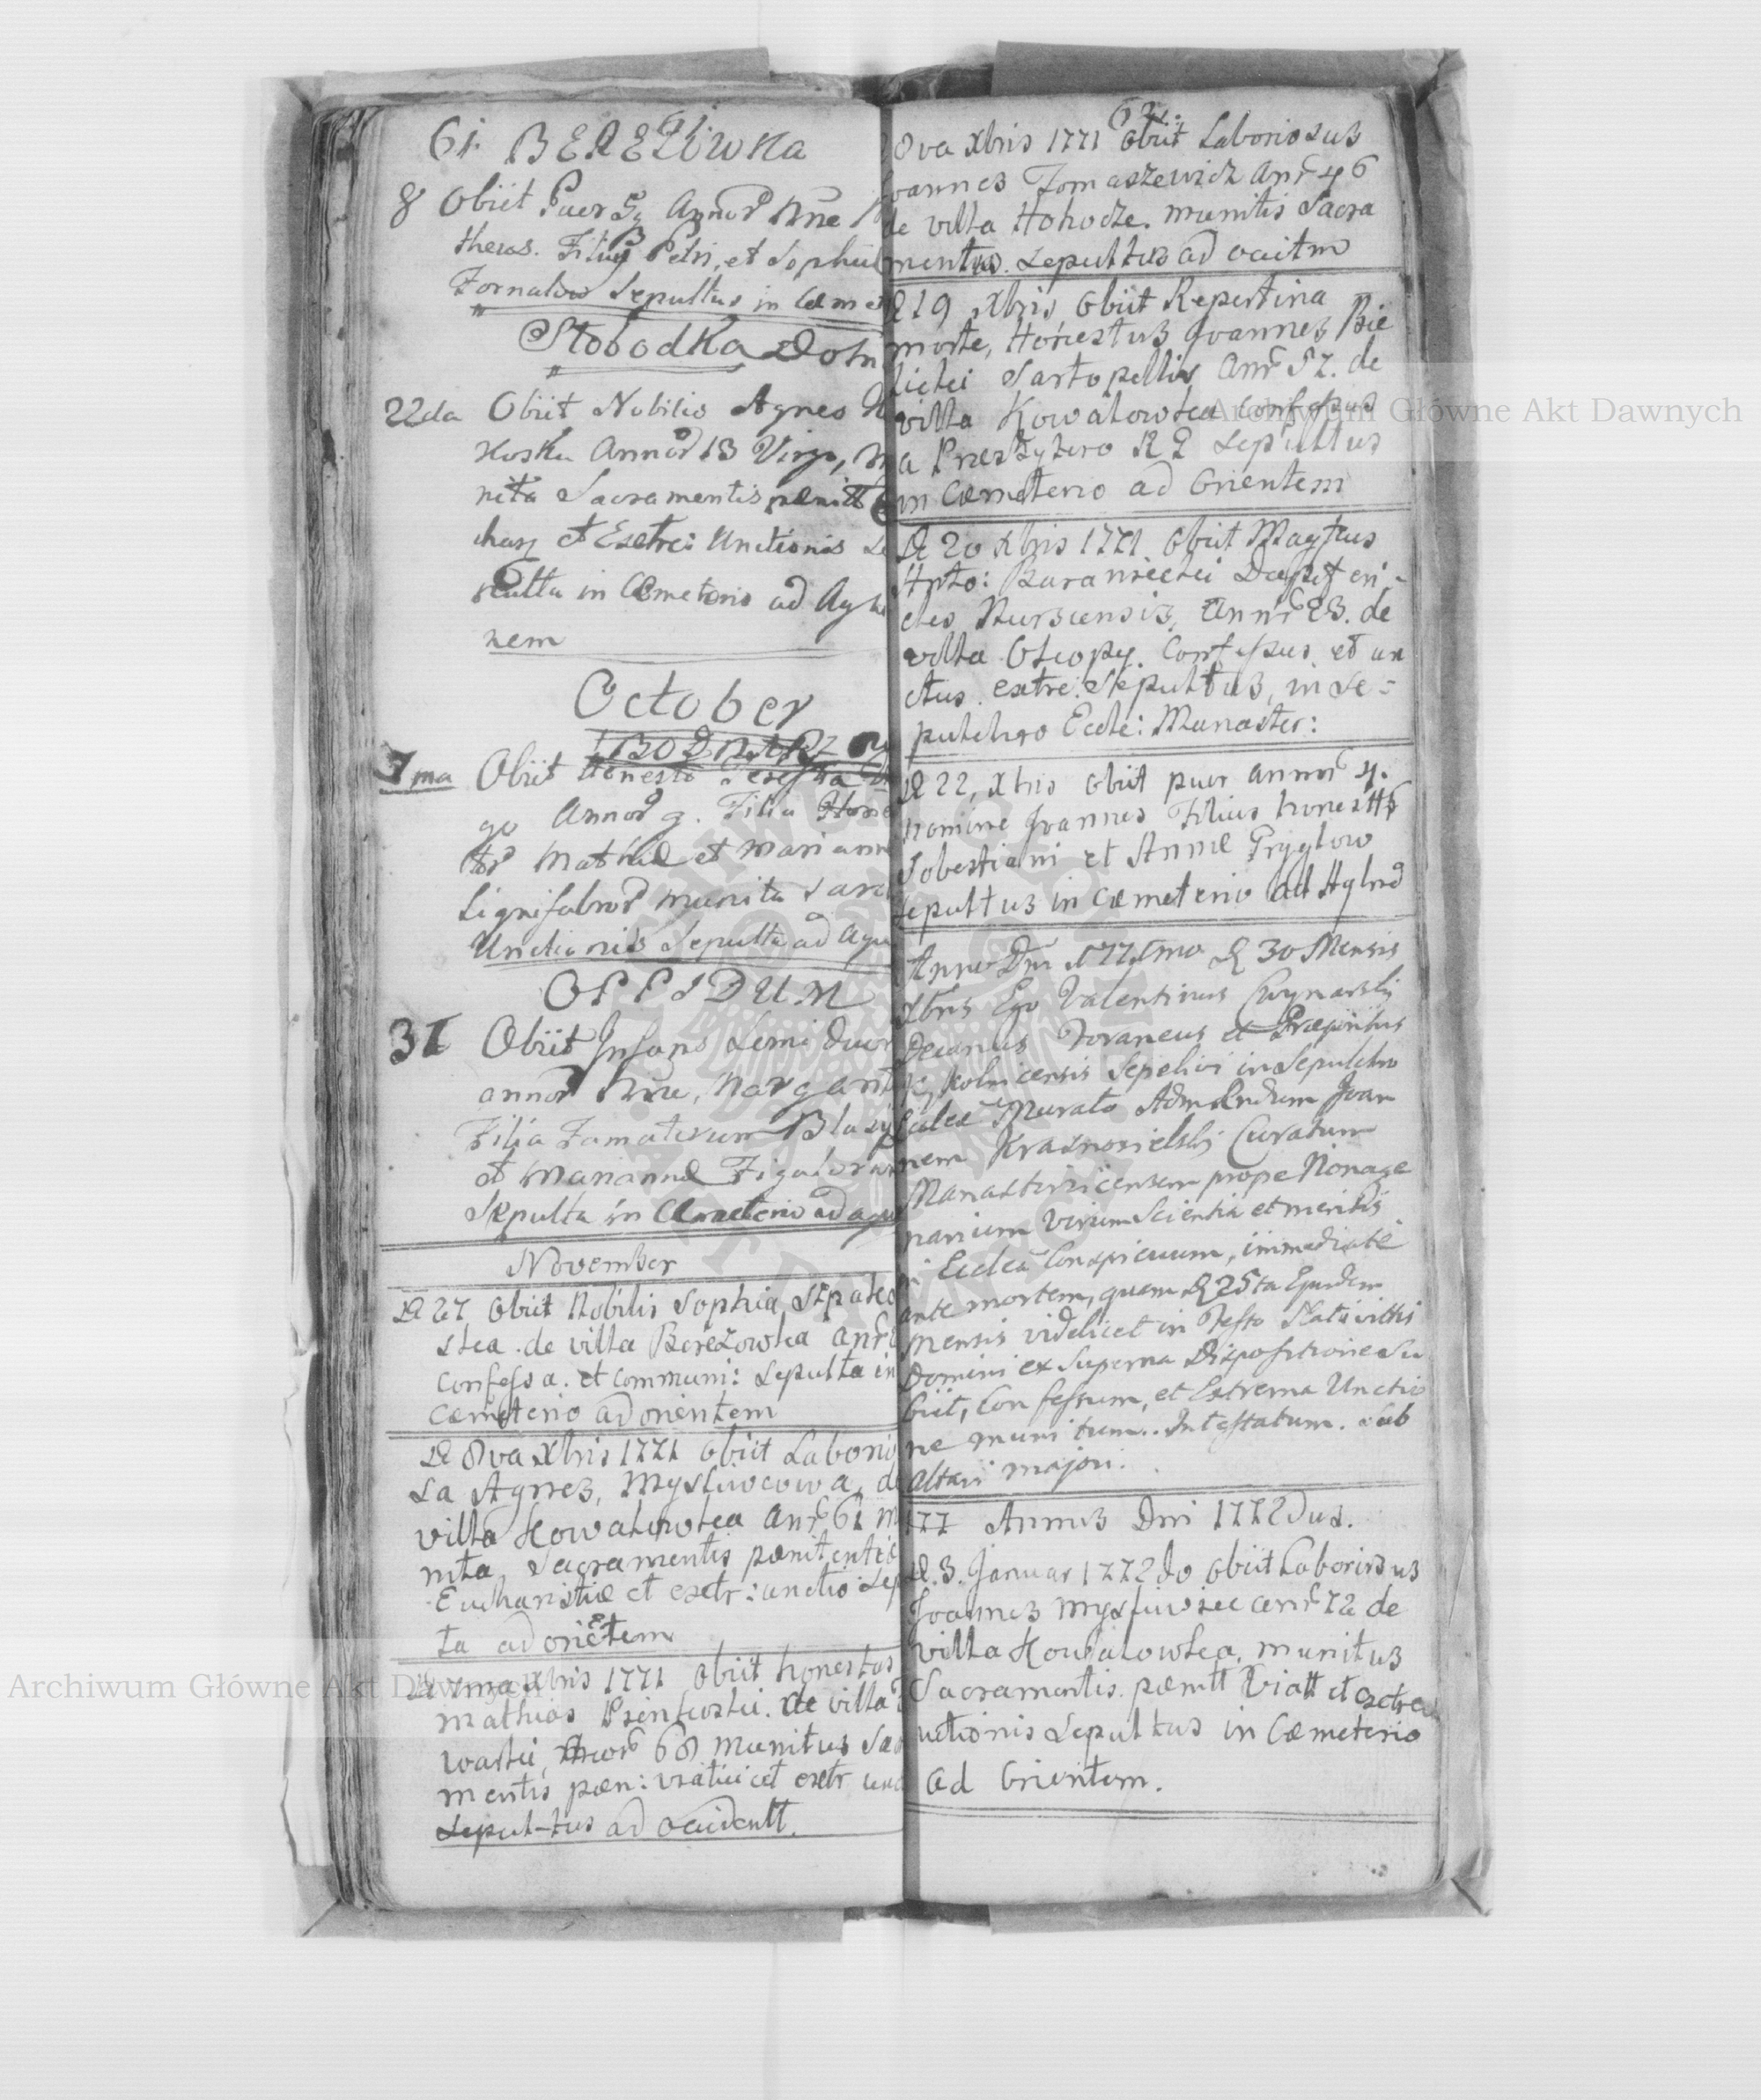 61. BEREZOWKA
61.
8 Obiit Puer 5 Annor Nne
theus. Filius Petri, et Sophiæ
Fornalow Sepultus in Cæmet
Slobodka Doln
22da Obiit Nobilis Agnes
Annor 13 Virgo, Mu
nita Sacramentis pænitt
char et Extre: Unctionis Se
pulta in Cæmeterio ad Aquilo
nem
October
BODNARZ
7ma Obiit Honesta
go Annor 9. Filia Hones
tor Mathiæ et Mariann
Lignifabror munita Sacr
Unctionis Sepulta ad Aqui
OPPIDUM
31 Obiit Infans Semi Duor
annor Nne, Margarit
Filia Famatorum Blasij
et Mariannæ Figulorum
Sepulta in Cæmeterio ad aqui
November
D 27 Obiit Nobilis Sophia
ska. de villa Berezowka Anr
confessa. et communi: Sepulta in
Cæmeterio ad orientem
D 8va Xbris 1771 obiit Laborio
sa Agnes, Mysliwcowa, de
villa Kowalowka Anr 61 m
nita, Sacramentis pænitentiæ
Eucharistiæ et extr: unctio: Sepu
ta ad orietem
Xbris 1771 obiit honestus
Mathias de villa
68 munitus Sac
mentis pæn: viatici et extr unc
Sepul-tus ad occidentt.
62.
8va Xbris 1771 obiit Laboriosus
Joannes Tomaszewicz Anr 46
de villa Hohodze. munitis Sacra
mentis. Sepultus ad occitm
D 19 Xbris obiit Repentina
morte, Honestus Joannes Bie
licki Sartopellis Anr 52. de
villa Kowalowka confessus
a Præsbytero R L Sepultus
in Cæmeterio ad Orientem
D 20 Xbris 1771. obiit Magfcus
Anto: Baraniecki Dapiferi-
des Nursensis, Annr 23. de
villa Oleopy. Confessus. et un
ctus. extre. Sepultus, in Se=
pulchro Eccle: Monaster:
D 22, Xbris obiit puer annor 4.
nomine Joannes Filius honesttr
Sobestiani et Annæ Pryglow
Sepultus in Cæmeterio ad Aqlnr
Anno Dni 1771mo D 30 Mensis
Xbris Ego Valentinus Cwynarski
Decanus Foraneus et Præpositus
Sepelivi in Sepulchro
Ecclæ Murato Adm Rndum Joan
nem Krasnosielski Curatum
Manasterzicensem prope Nonage
narium Virum Scientia et meritis
in Ecclea Conspicuum, immediate
ante mortem, quam D 25ta Ejusdem
Mensis videlicet in Festo Nativittis
Domini ex Superna Dispositione Su
biit, Confessum, et Extrema Unctio
ne munitum.. Intestatum. Sub
altari majori.
177 Annus Dni 1772dus.
D. 3. Januar 1772do obiit Laboriosus
Joannes Mysliwiec Annr 72 de
villa Kowalowka, munitus
Sacramentis. pænitt Viatt et extre
nctionis Sepultus in Cæmeterio
ad Orientem.
Archiwum Główne Akt Dawnych
Archiwum Główne Akt Dawnych